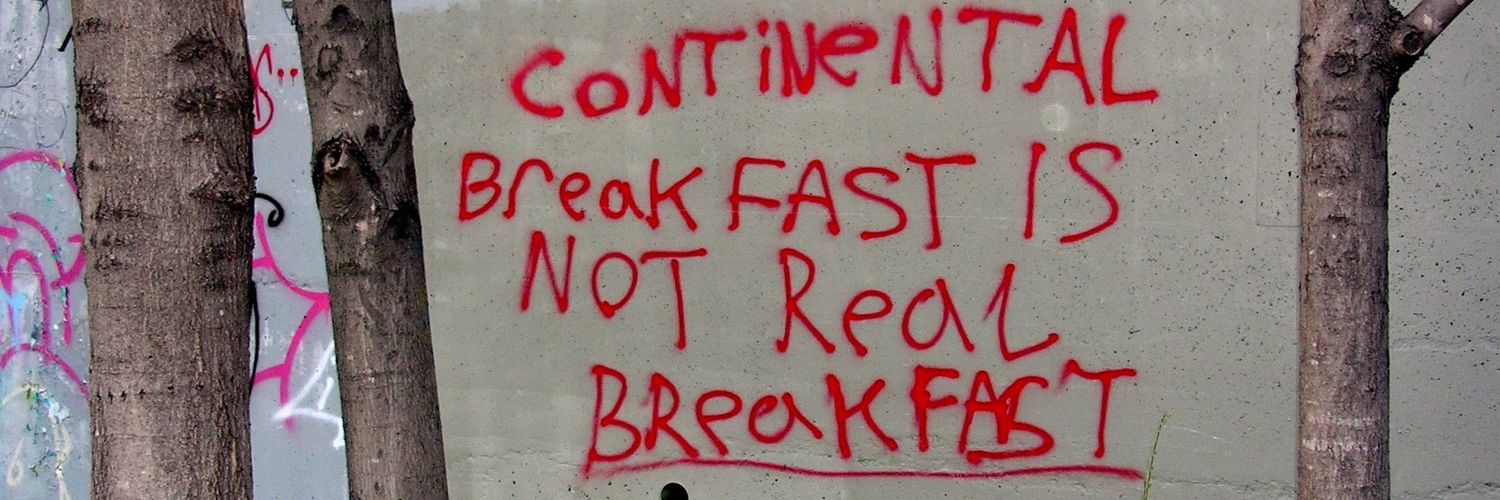 CONTiNeNTAL
BreaK FAST IS
NOT ReaL
BReaKFAST